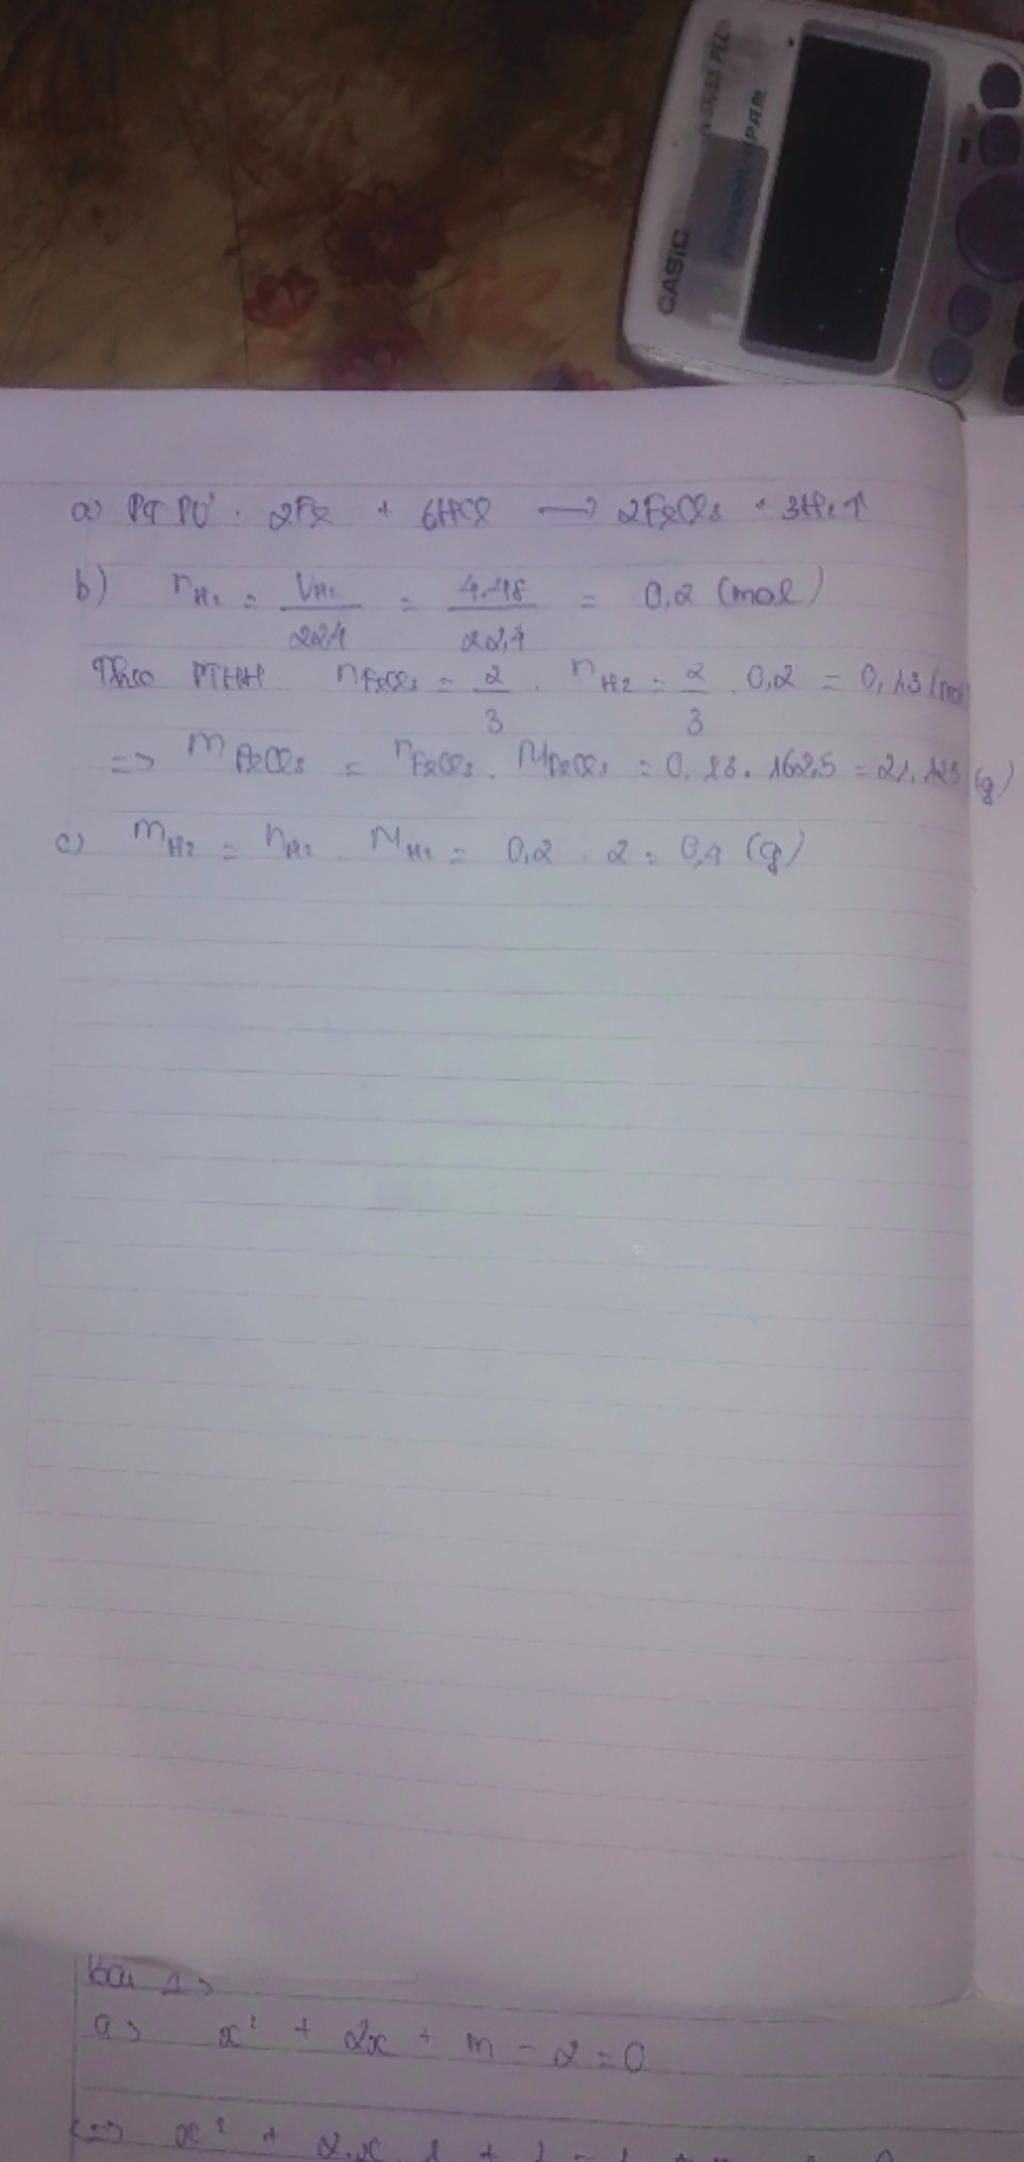 CASIO
a) PT PƯ: 2Fe + 6HCl → 2FeCl3 + 3H2↑
b) nH2 = VH2/22,4 = 4,48/22,4 = 0,2 (mol)
Theo PTHH nFeCl3 = 2/3 . nH2 = 2/3 . 0,2 = 0,13 (mol)
=> mFeCl3 = nFeCl3 . MFeCl3 = 0,13 . 162,5 = 21,125 (g)
c) mH2 = nH2 . MH2 = 0,2 . 2 = 0,4 (g)
Bài 1>
a> x² + 2x + m - 2 = 0